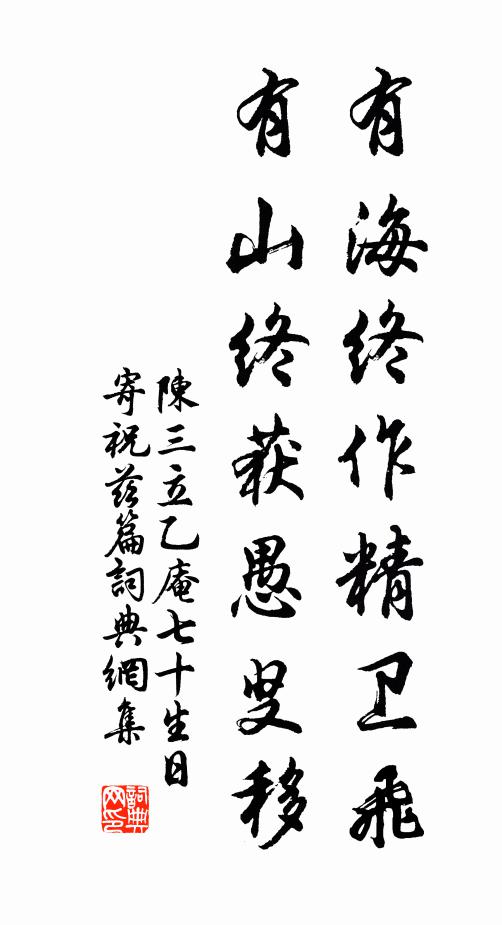 有海终作精卫飛
有山终获愚叟移
陳三立乙庵七十生日
寄祝茲篇詞典網集
詞典网印